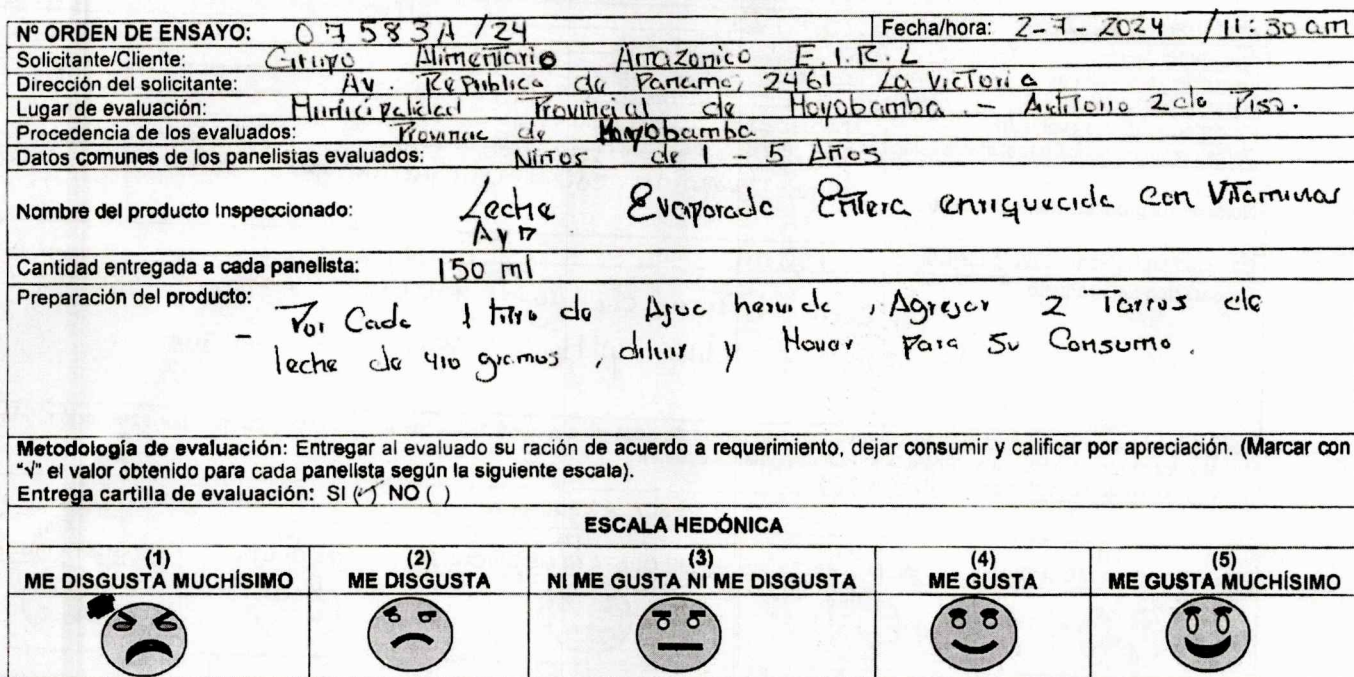 Nº ORDEN DE ENSAYO: 07583A/24 Fecha/hora: 2-7-2024 /11:30 am
Solicitante/Cliente: Grupo Alimentario Amazonico E.I.R.L
Dirección del solicitante: Av. Republica de Panama, 2461 La Victoria
Lugar de evaluación: Municipalidad Provincial de Moyobamba - Auditorio 2do Piso.
Procedencia de los evaluados: Provincia de Moyobamba
Datos comunes de los panelistas evaluados: Niños de 1 - 5 Años
Nombre del producto Inspeccionado: Leche Evaporada Entera enriquecida con Vitaminas
A y D
Cantidad entregada a cada panelista: 150 ml
Preparación del producto:
- Por Cada 1 litro de Agua hervida, Agregar 2 Tarros de
leche de 410 gramos, diluir y Para su Consumo.
Metodología de evaluación: Entregar al evaluado su ración de acuerdo a requerimiento, dejar consumir y calificar por apreciación. (Marcar con
"√" el valor obtenido para cada panelista según la siguiente escala).
Entrega cartilla de evaluación: SI (✓) NO ( )
ESCALA HEDÓNICA
(1) (2) (3) (4) (5)
ME DISGUSTA MUCHÍSIMO ME DISGUSTA NI ME GUSTA NI ME DISGUSTA ME GUSTA ME GUSTA MUCHÍSIMO